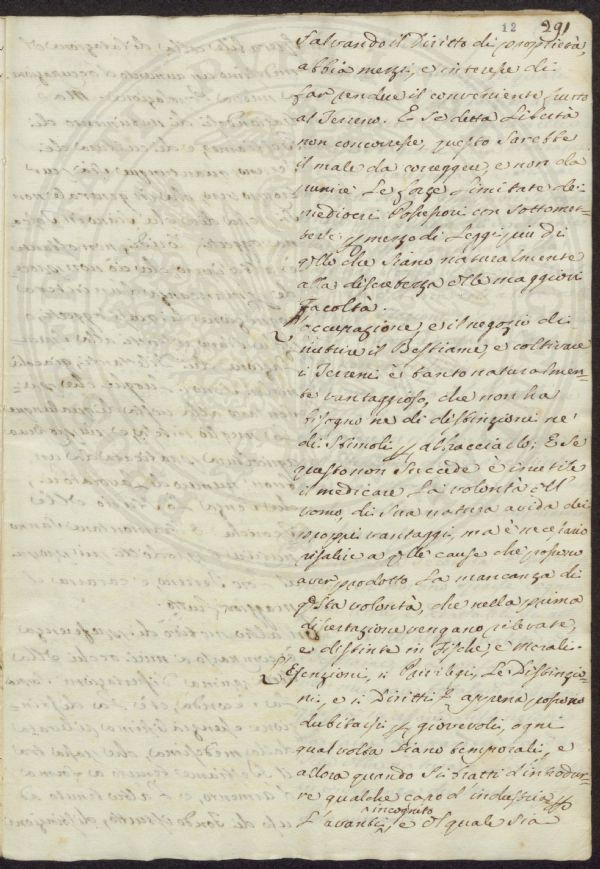 12 291
Salvando il Diritto di proprietà,
abbia mezzi, e interesse di
far rendere il conveniente frutto
al Terreno. E se detta Libertà
non concorresse, questo sarebbe
il male da correggere, e non da
punire Le forze limitate dei
mediocri Possessori con sottomet=
terle p mezzo di Leggi più di
qllo che siano naturalmente
alla discretezza dlle maggiori
Facoltà.
L'occupazione, e il negozio di
nutrire il Bestiame, e coltivare
i Terreni è tanto naturalmen=
te vantaggioso, che non ha
bisogno nè di distinzioni nè
di stimoli p abbracciarlo; E se
questo non succede è inutile
il medicare La volontà dll'
uomo, di sua natura avida dei
proppri vantaggi, ma è necessario
risalire a qlle cause che possono
aver prodotto La mancanza di
qsta volontà, che nella prima
dissertazione vengano rilevate,
e distinte in Fisiche, e Morali.
L'Esenzioni, i Privilegi, Le Distinzio=
ni, e i Diritti appena possono
dubitarsi p giovevoli, ogni
qual volta siano temporali, e
allora quando si tratti d'introdur=
re qualche capo d'industria p
L'avanti incognito, e dl quale sia